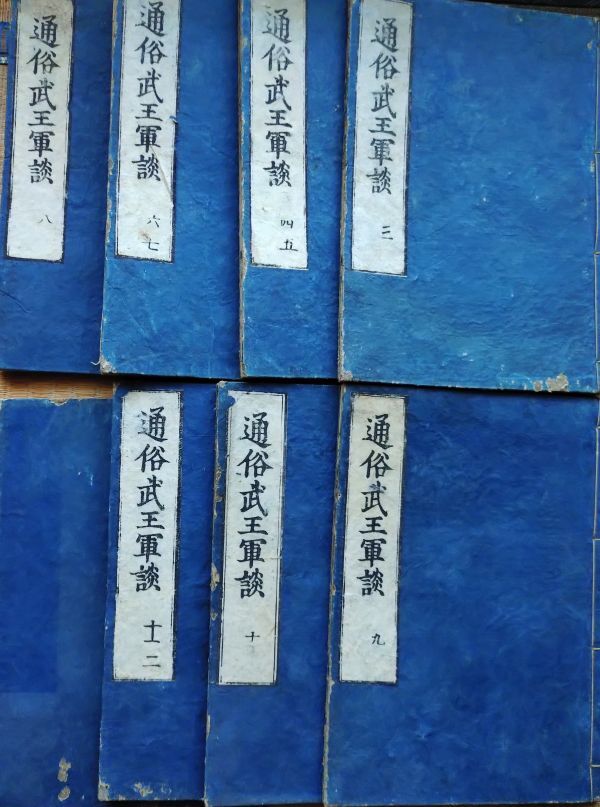 通俗武王軍談 三
通俗武王軍談 四五
通俗武王軍談 六七
通俗武王軍談 八
通俗武王軍談 九
通俗武王軍談 十
通俗武王軍談 十一二